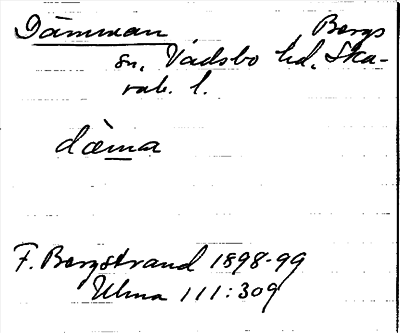 Dämman Bergs
sn, Vadsbo hd, Ska-
rab. l.
dämma
F. Bergstrand 1898-99
Ulma 111:309